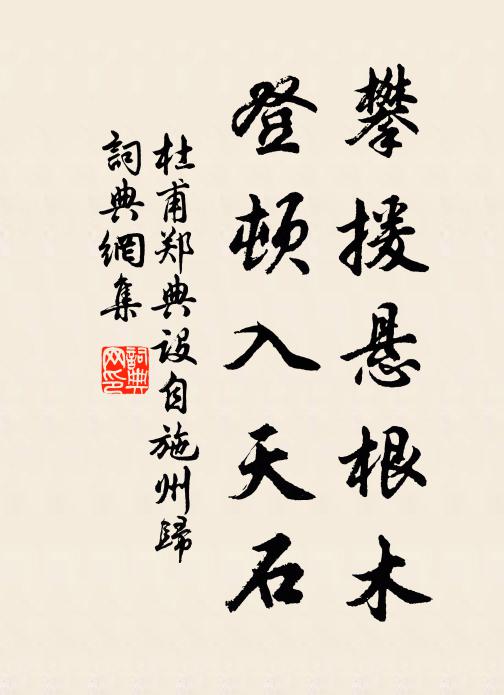 攀援悬根木
登顿入天石
杜甫郑典设自施州歸
詞典網集
詞典网印